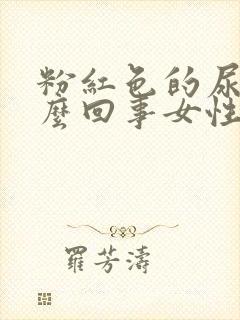 粉紅色的尿
麼回事女性
羅芳濤